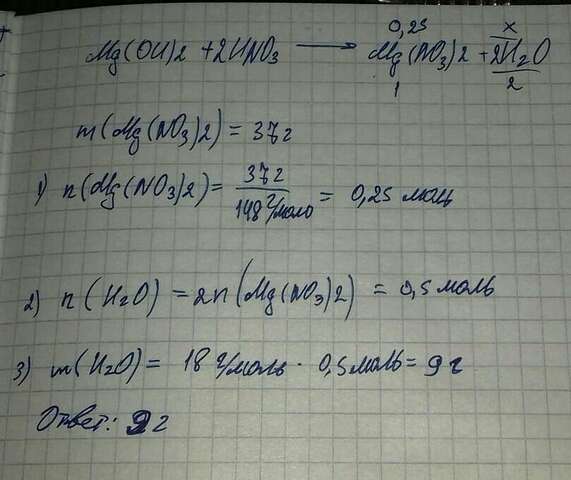 0,25 x
Mg(OH)2 + 2HNO3 → Mg(NO3)2 + 2H2O
1 2
m(Mg(NO3)2) = 37г
1) n(Mg(NO3)2) = 37г / 148г/моль = 0,25 моль
2) n(H2O) = 2n(Mg(NO3)2) = 0,5 моль
3) m(H2O) = 18 г/моль · 0,5 моль = 9г
Ответ: 9г